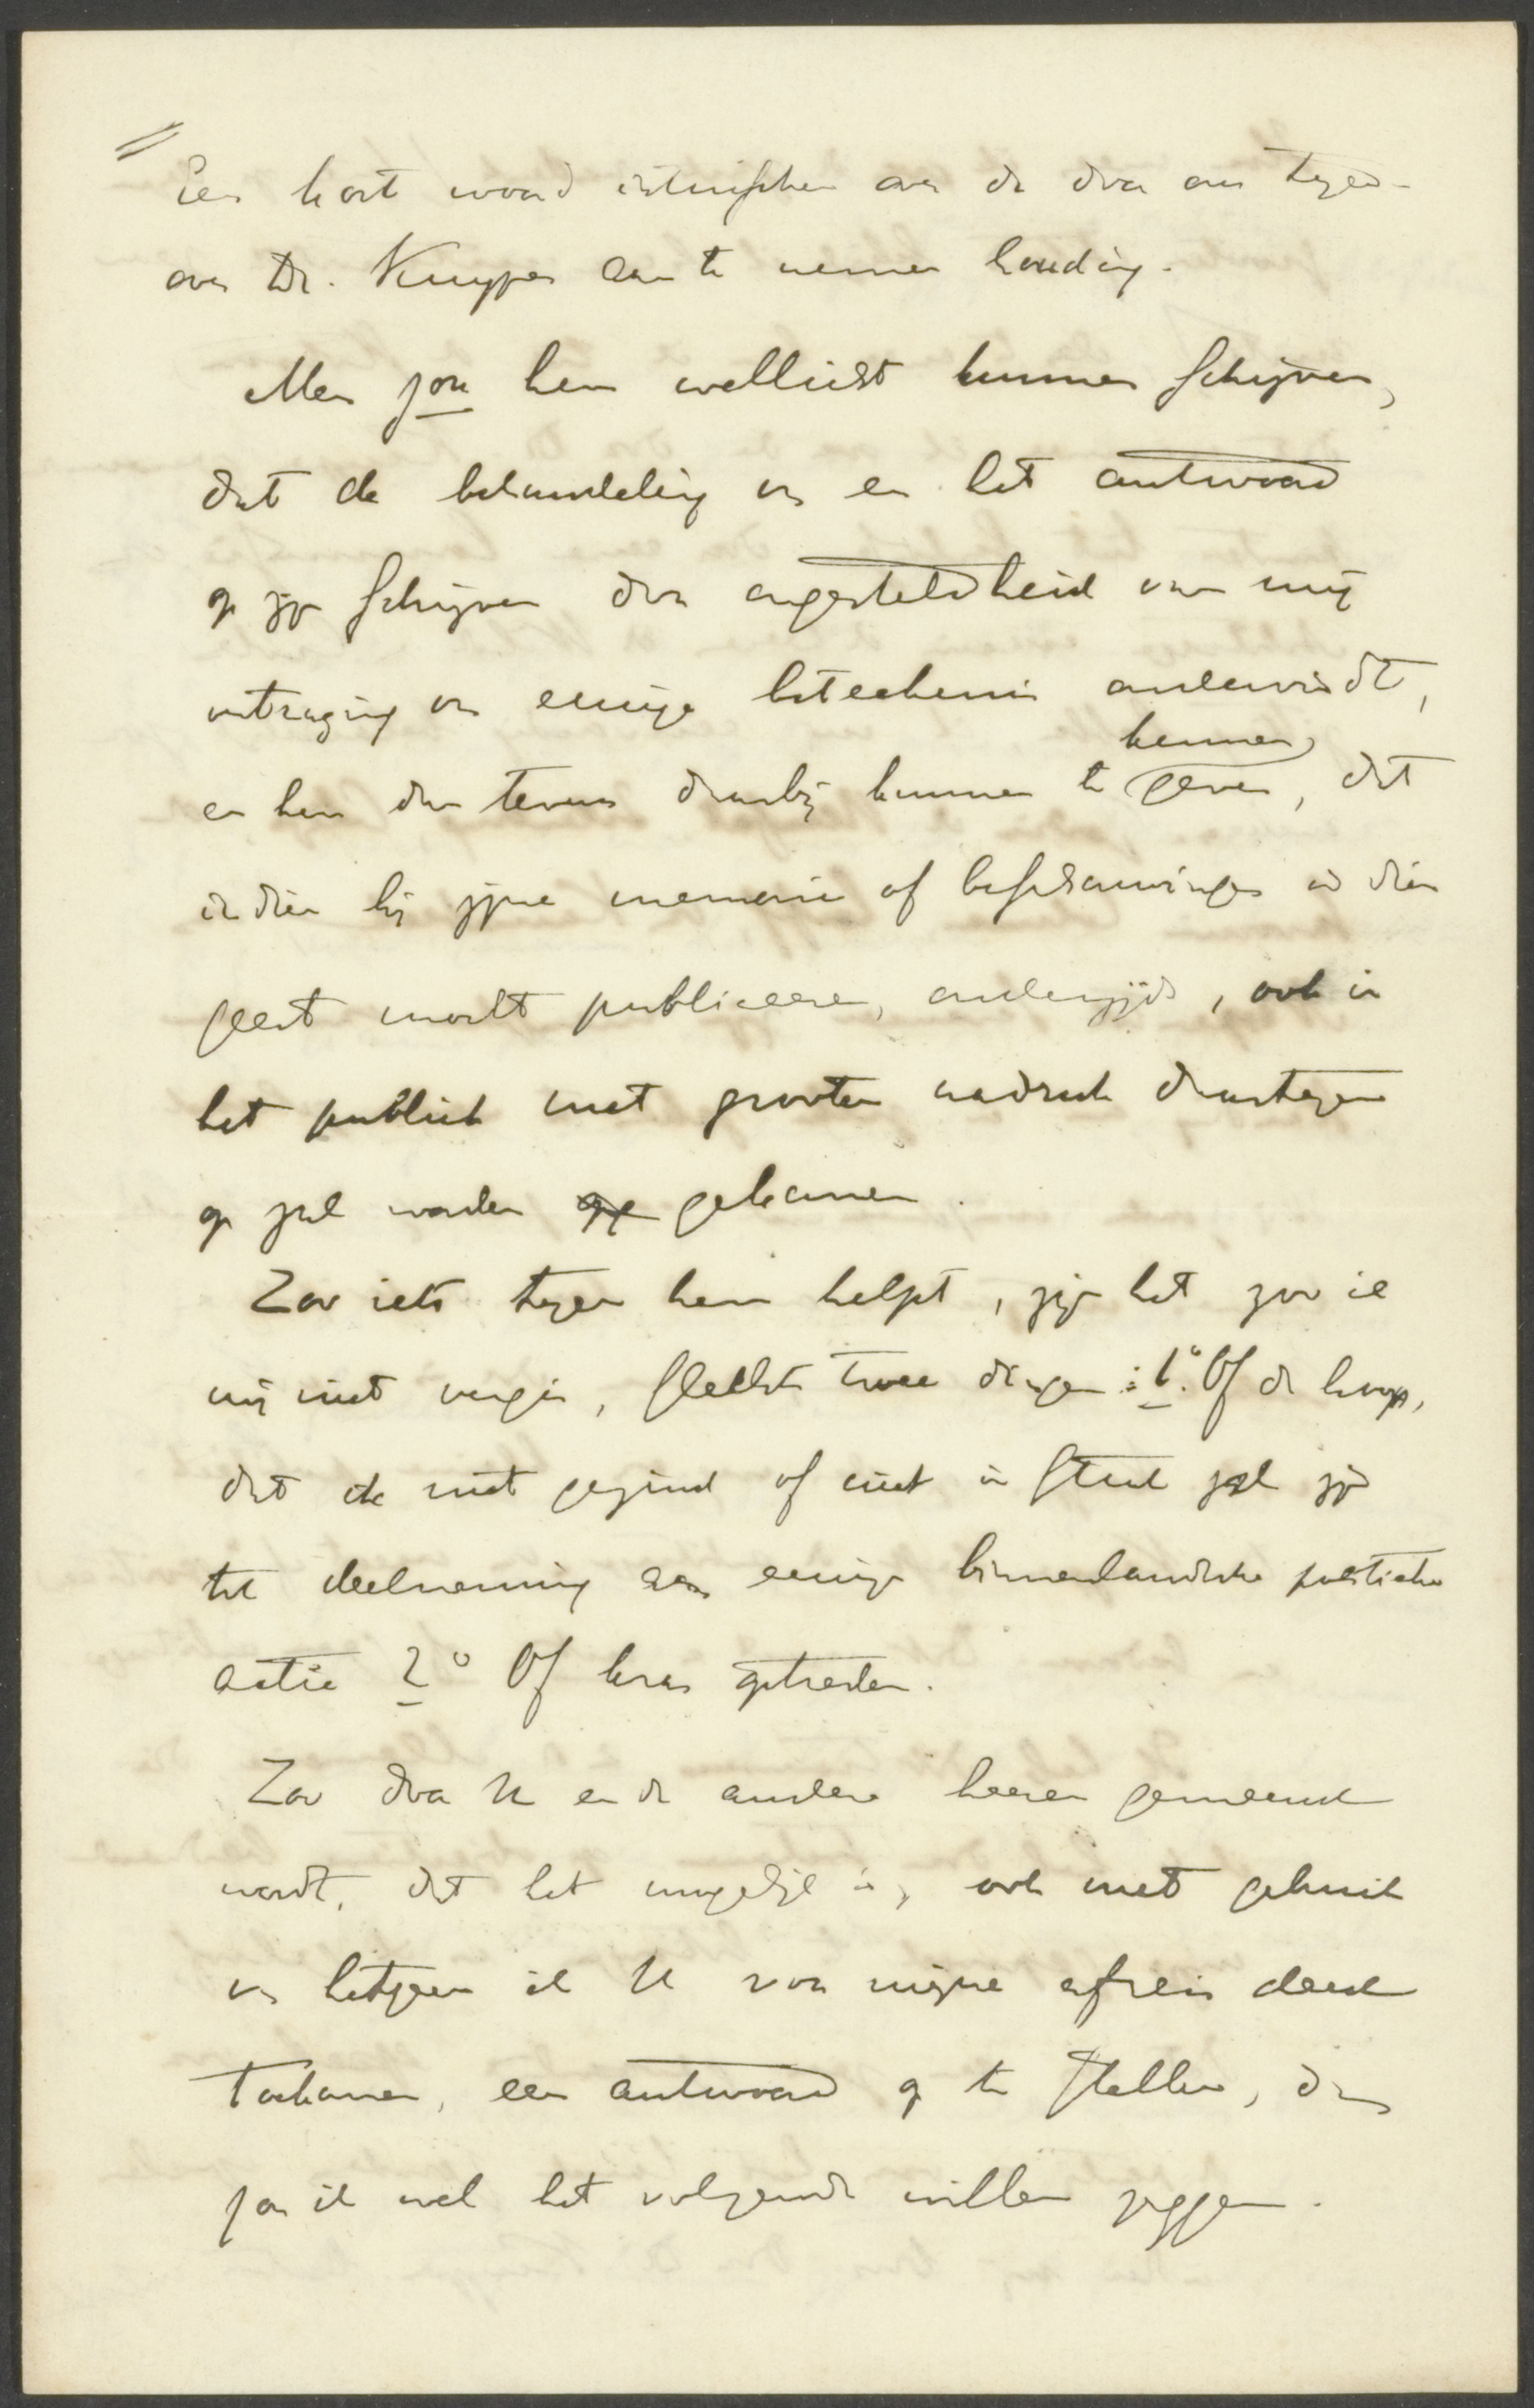 Een kort woord intusschen over de door ons tegen-
over Dr. Kuyper aan te nemen houding.
Men zou hem wellicht kunnen schrijven,
dat de behandeling van en het antwoord
op zijn schrijven door ongesteldheid van mij
vertraging van eenige beteekenis ondervindt,
kennen
en hem dan tevens daarbij kunnen te geven, dat
indien hij zijne memorie of beschouwingen in dien
geest mocht publiceeren, onderzijds, ook in
het publiek met grooten nadruk daartegen
op zal worden op gekomen.
Zoo iets tegen hem helpt, zijn het zoo ik
mij niet vergis, slechts twee dingen: 1° Of de hoop,
dat ik niet gezind of niet in staat zal zijn
tot deelneming aan eenige binnenlandsche politieke
actie 2° Of kras optreden.
Zoo door U en de andere heeren gemeend
wordt, dat het mogelijk is, ook met gebruik
van hetgeen ik U voor mijne afreis deed
toekomen, een antwoord op te stellen, dan
zou ik wel het volgende willen zeggen.